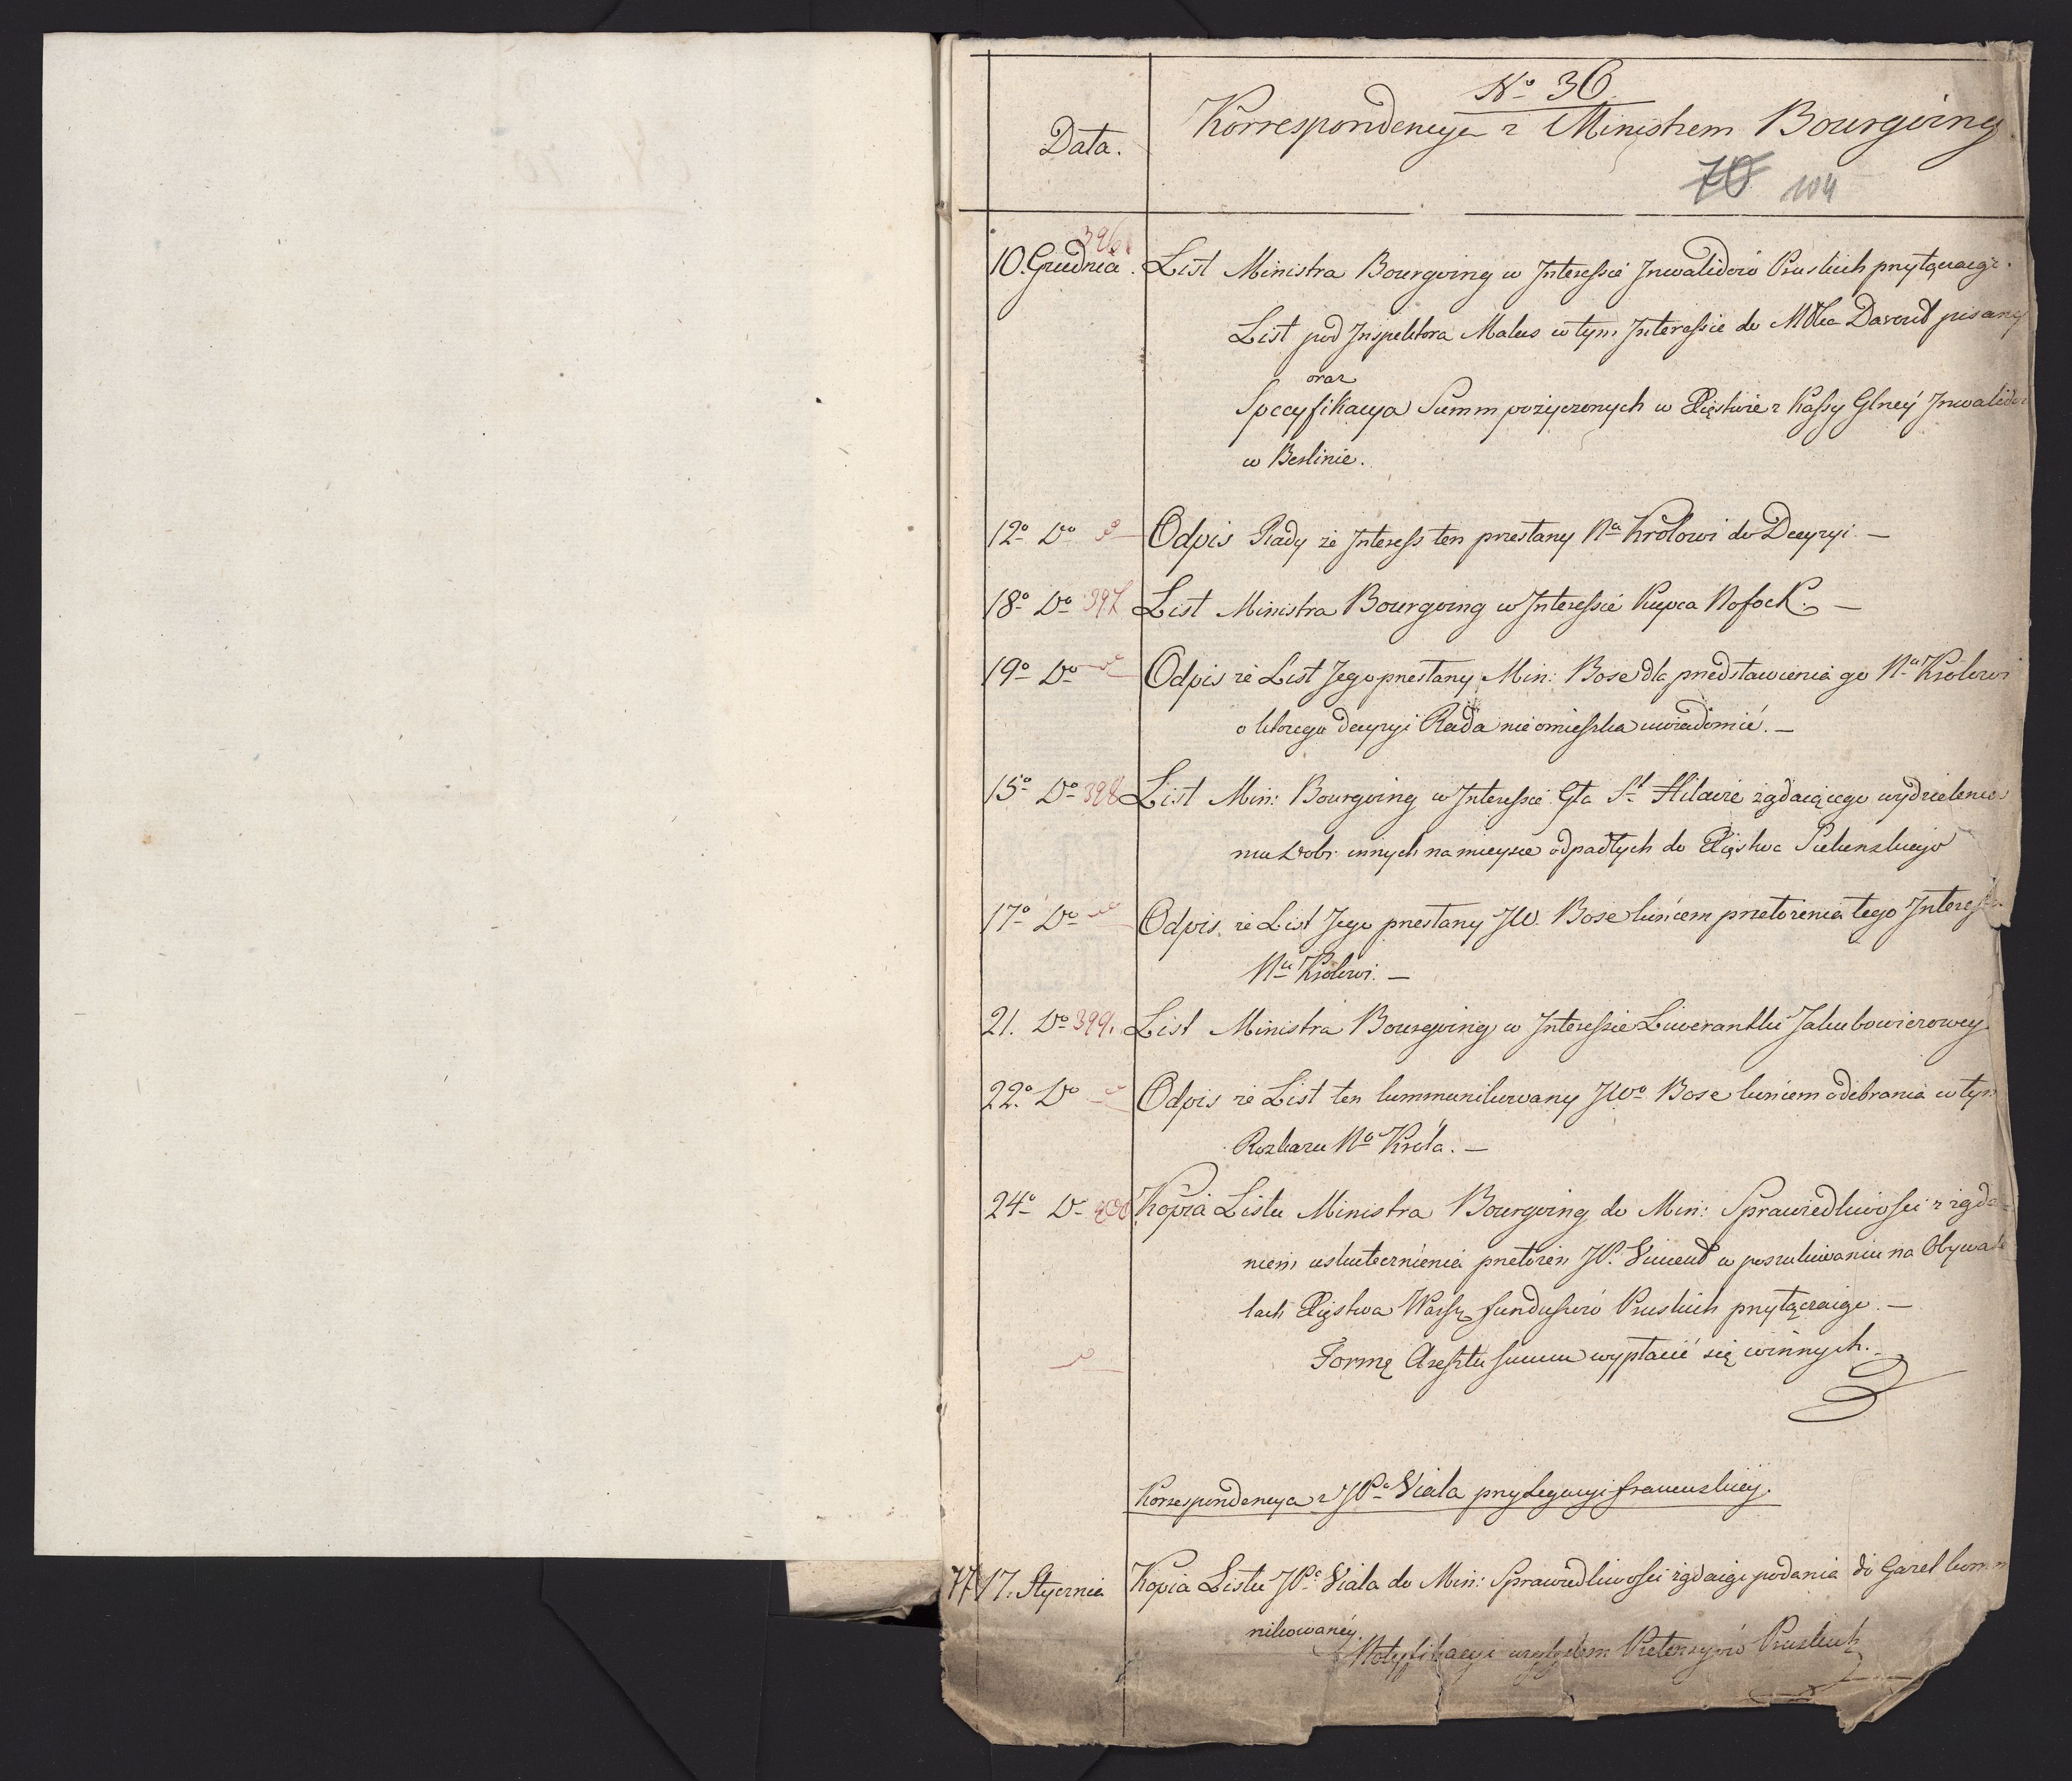 No 36.
Data.
Korrespondencya z Ministrem Bourgoing
70 104
396
10. Grudnia. List Ministra Bourgoing w Interessie Inwalidów Pruskich przyłączaiąc.
List pod Inspektora Malus w tym Interessie do Młka Davoud pisany
oraz
Specyfikacya Summ pożyczonych w Xięstwie z Kassy Glney Inwalidów
w Berlinie.
12o Do Odpis Rady że Interess ten przesłany Na Królowi do Decyzyi. —
18o Do 397 List Ministra Bourgoing w Interessie Kupca Nofock. —
19o Do Odpis że List Jego przesłany Min: Bose dla przedstawienia go Na Królowi
o którego decyzyi Rada nieomieszka uwiadomić. —
15o Do 398 List Min: Bourgoing w Interessie Gła St Hilaire żądaiącego wydzielenia
mu Dobr innych na mieysce odpadłych do Xięstwa
17o Do Odpis że List Jego przesłany JW. Bose końcem przełożenia tego Interessu
Na Królowi. —
21. Do 399. List Ministra Bourgoing w Interessie Liwerantki Jakubowiczowey
22o Do Odpis że List ten kommunikowany JWo Bose końcem odebrania w tym
Rozkazu No Króla. —
24o Do 400 Kopia Listu Ministra Bourgoing do Min: Sprawiedliwości z żąda-
niem uskutecznienia przełożeń JP. w poszukiwaniu na Obywate
lach Xięstwa Warsz funduszów Pruskich przyłączaiąc. —
Formę Aresztu summ wypłacić się winnych. —
Korrespondencya z JPa Viala przy Legacyi francuzkiey.
77 17. Stycznia Kopia Listu JPa Viala do Min: Sprawiedliwości żądaiąc podania do Gazet kommu
nikowaney.
Notyfikacyi względem Pretensyów Pruskich